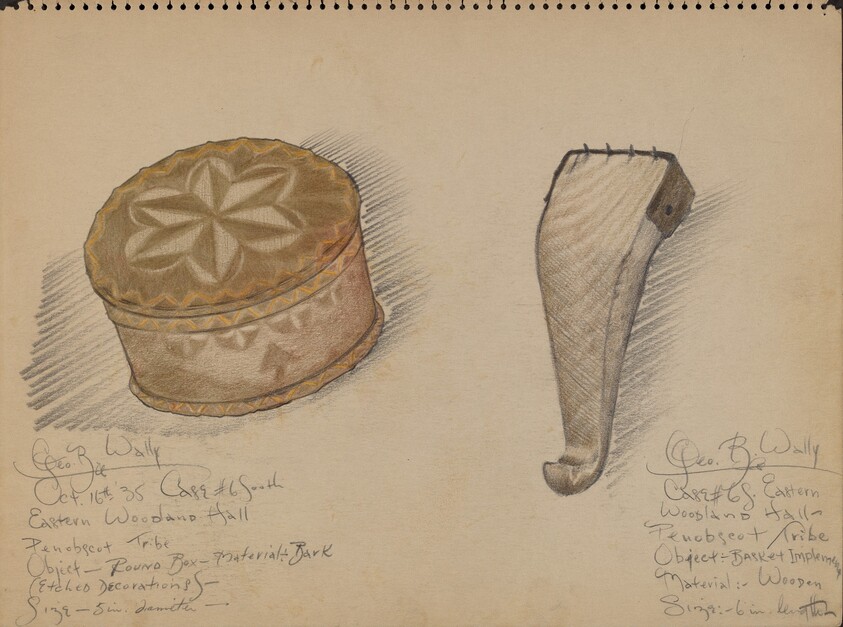 Geo. B. Wally
Oct. 16th '35 Case #6 South
Eastern Woodland Hall
Penobscot Tribe
Object — Round Box — Material:- Bark
(Etched Decorations) —
Size — 5 in. diameter —
Geo. B. Wally
Case #6 S. Eastern
Woodland Hall —
Penobscot Tribe
Object:- Basket Implement
Material:- Wooden
Size:- 6 in. length